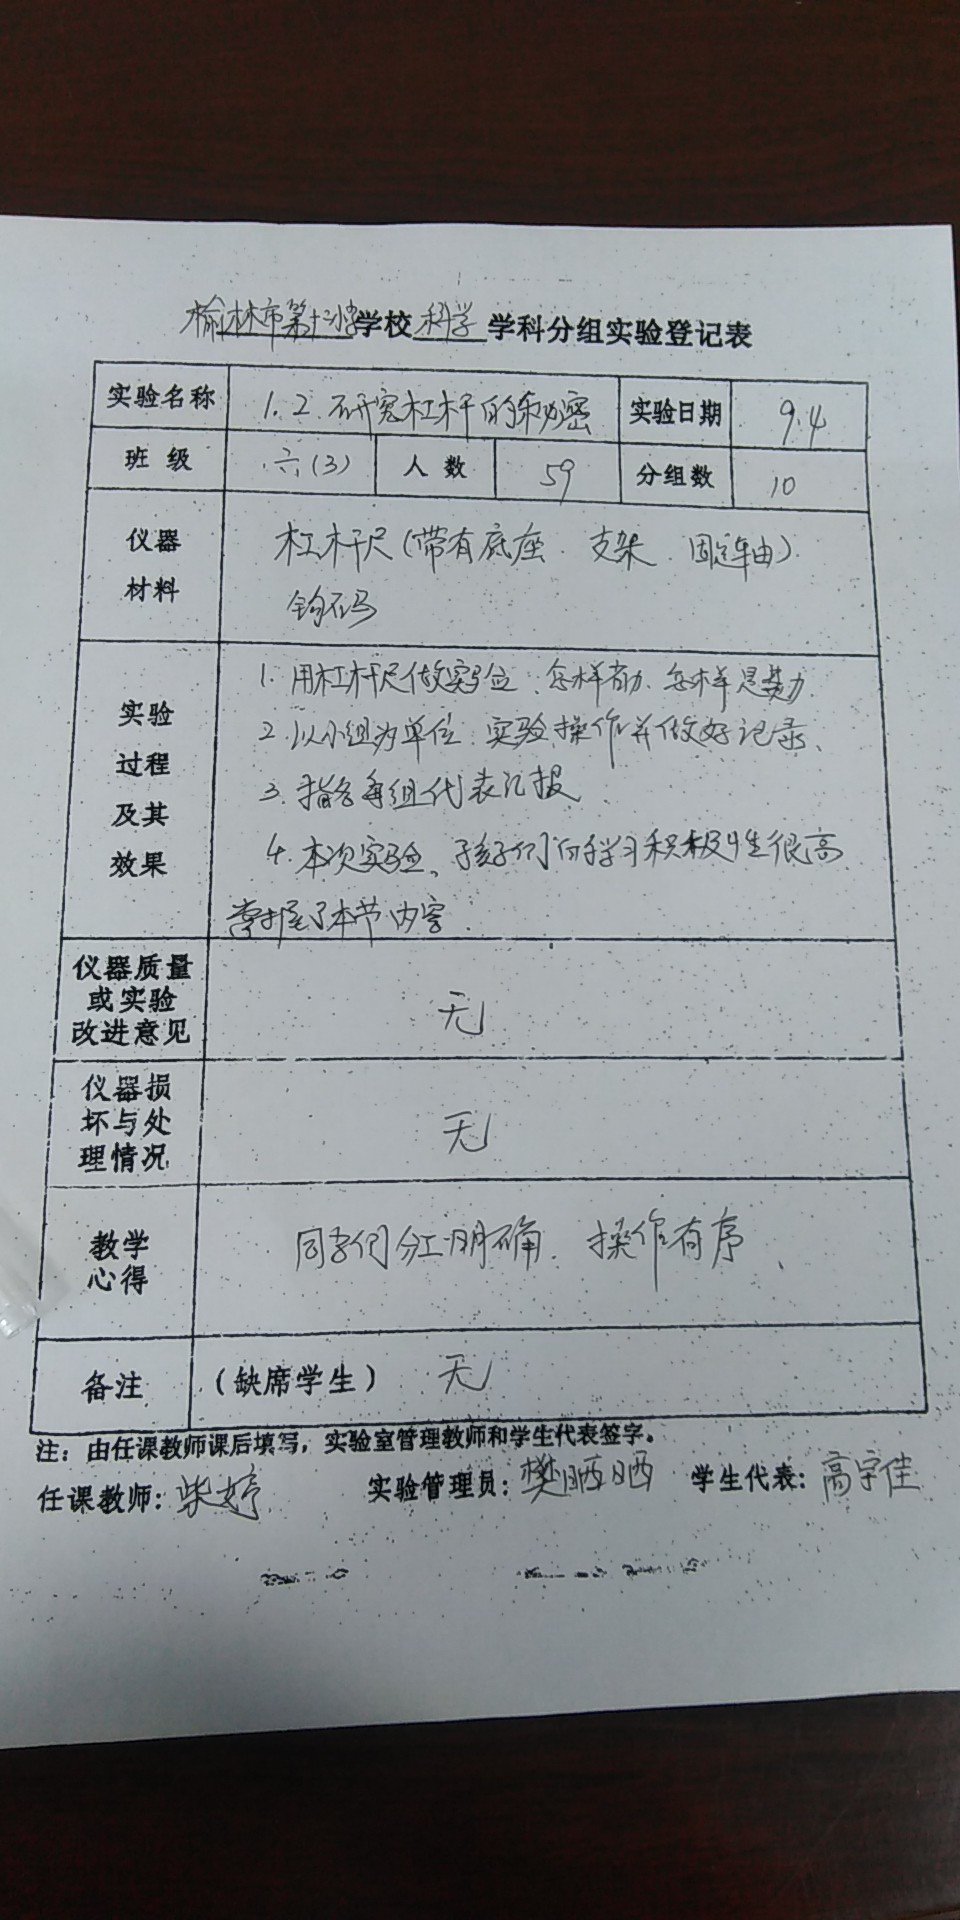 榆林市第十二小学学校科学学科分组实验登记表
实验名称 1.2.研究杠杆的秘密 实验日期 9.4
班级 六(3) 人数 59 分组数 10
仪器材料 杠杆尺(带有底座、支架、固定轴).
钩码
实验过程及其效果 1.用杠杆尺做实验、怎样省力、怎样是费力
2.以小组为单位.实验操作并做好记录、
3.指名每组代表汇报
4.本次实验、孩子们的学习积极性很高
掌握了本节内容.
仪器质量或实验改进意见 无
仪器损坏与处理情况 无
教学心得 同学们分工明确、操作有序
备注 (缺席学生) 无
注：由任课教师课后填写，实验室管理教师和学生代表签字。
任课教师：柴婷 实验管理员：樊晒晒 学生代表：高宇佳